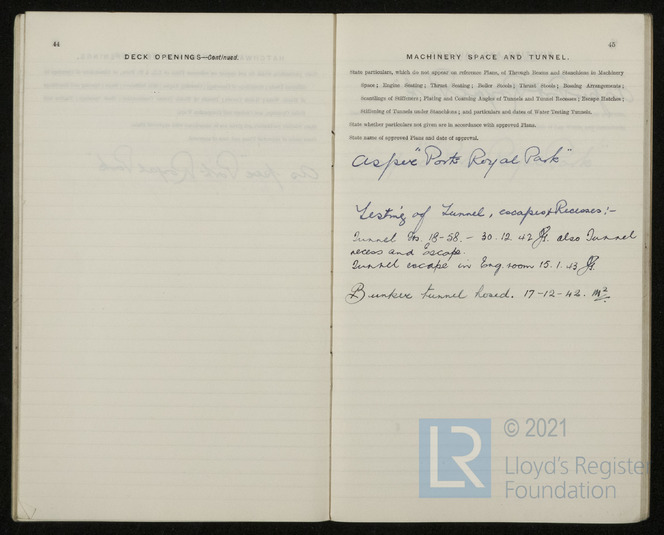 44
DECK OPENINGS—Continued.
45
MACHINERY SPACE AND TUNNEL.
State particulars, which do not appear on reference Plans, of Through Beams and Stanchions in Machinery
Space; Engine Seating; Thrust Seating; Boiler Stools; Thrust Stools; Bossing Arrangements;
Scantlings of Stiffeners; Plating and Coaming Angles of Tunnels and Tunnel Recesses; Escape Hatches;
Stiffening of Tunnels under Stanchions; and particulars and dates of Water Testing Tunnels.
State whether particulars not given are in accordance with approved Plans.
State name of approved Plans and date of approval.
As per "Port Royal Park"
Testing of Tunnel, escapes & Recesses:-
Tunnel Frs. 18-58. - 30.12.42 also Tunnel
recess and Escape.
Tunnel escape in Eng. room 15.1.43
Bunker tunnel hosed. 17-12-42.
LR
© 2021
Lloyd's Register
Foundation